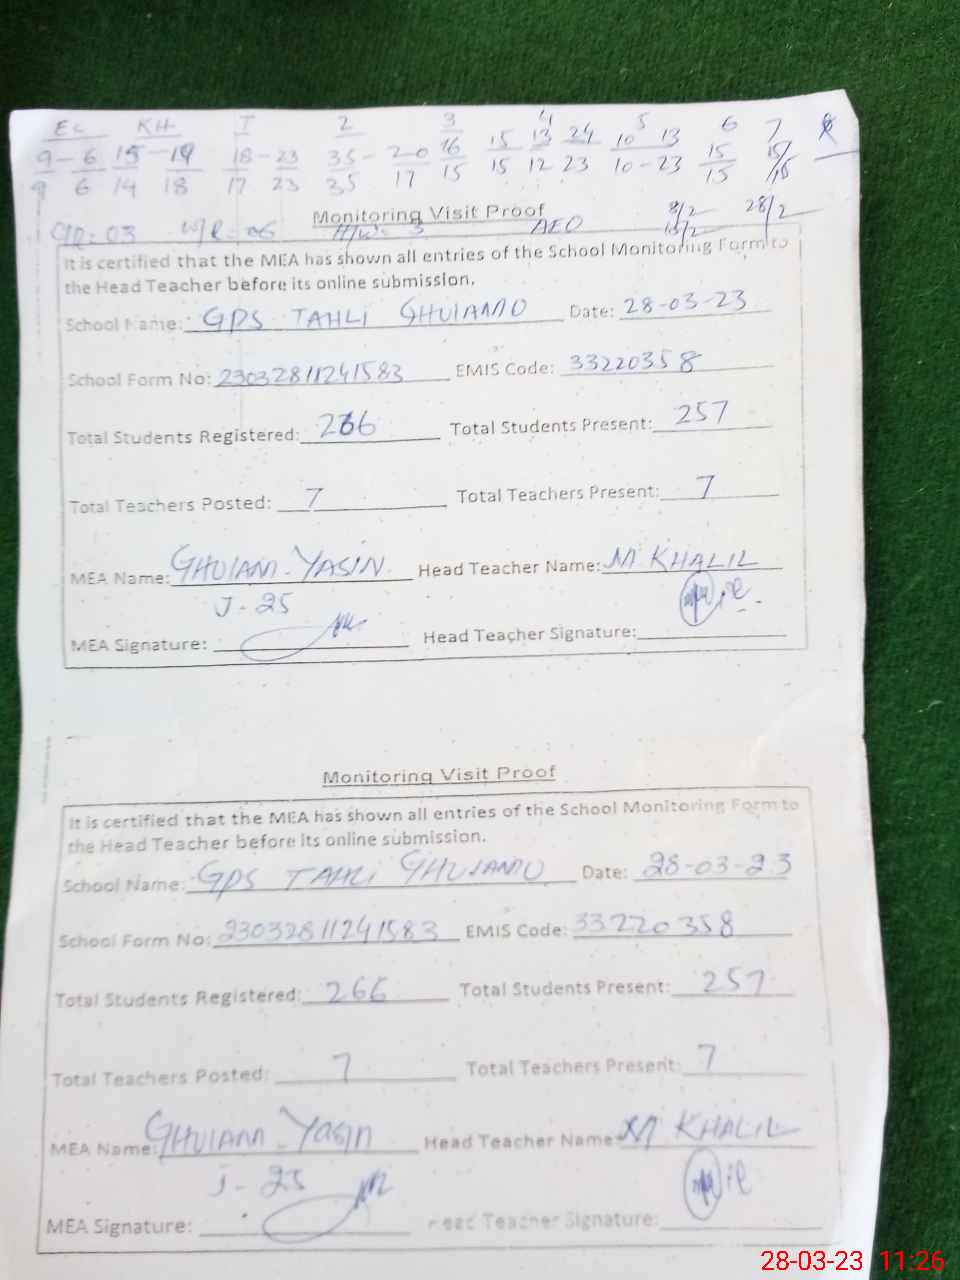 EC KH I 2 3 4 5 6 7
9 - 6 15 - 19 18 - 23 35 - 20 16 15 13 24 10 13 15 15
9 6 14 18 17 23 35 17 15 15 12 23 10 - 23 15 15
Monitoring Visit Proof 28/2
03 06 AEO
It is certified that the MEA has shown all entries of the School Monitoring Form to
the Head Teacher before its online submission.
School Name: GPS TAHLI GHULAMO Date: 28-03-23
School Form No: 23032811241583 EMIS Code: 33220358
Total Students Registered: 266 Total Students Present: 257
Total Teachers Posted: 7 Total Teachers Present: 7
MEA Name: GHULAM YASIN Head Teacher Name: M KHALIL
J-25
MEA Signature: Head Teacher Signature:
Monitoring Visit Proof
It is certified that the MEA has shown all entries of the School Monitoring Form to
the Head Teacher before its online submission.
School Name: GPS TAHLI GHULAMO Date: 28-03-23
School Form No: 23032811241583 EMIS Code: 33220358
Total Students Registered: 266 Total Students Present: 257
Total Teachers Posted: 7 Total Teachers Present: 7
MEA Name: GHULAM Yasin Head Teacher Name: M KHALIL
J-25
MEA Signature: Head Teacher Signature:
28-03-23 11:26